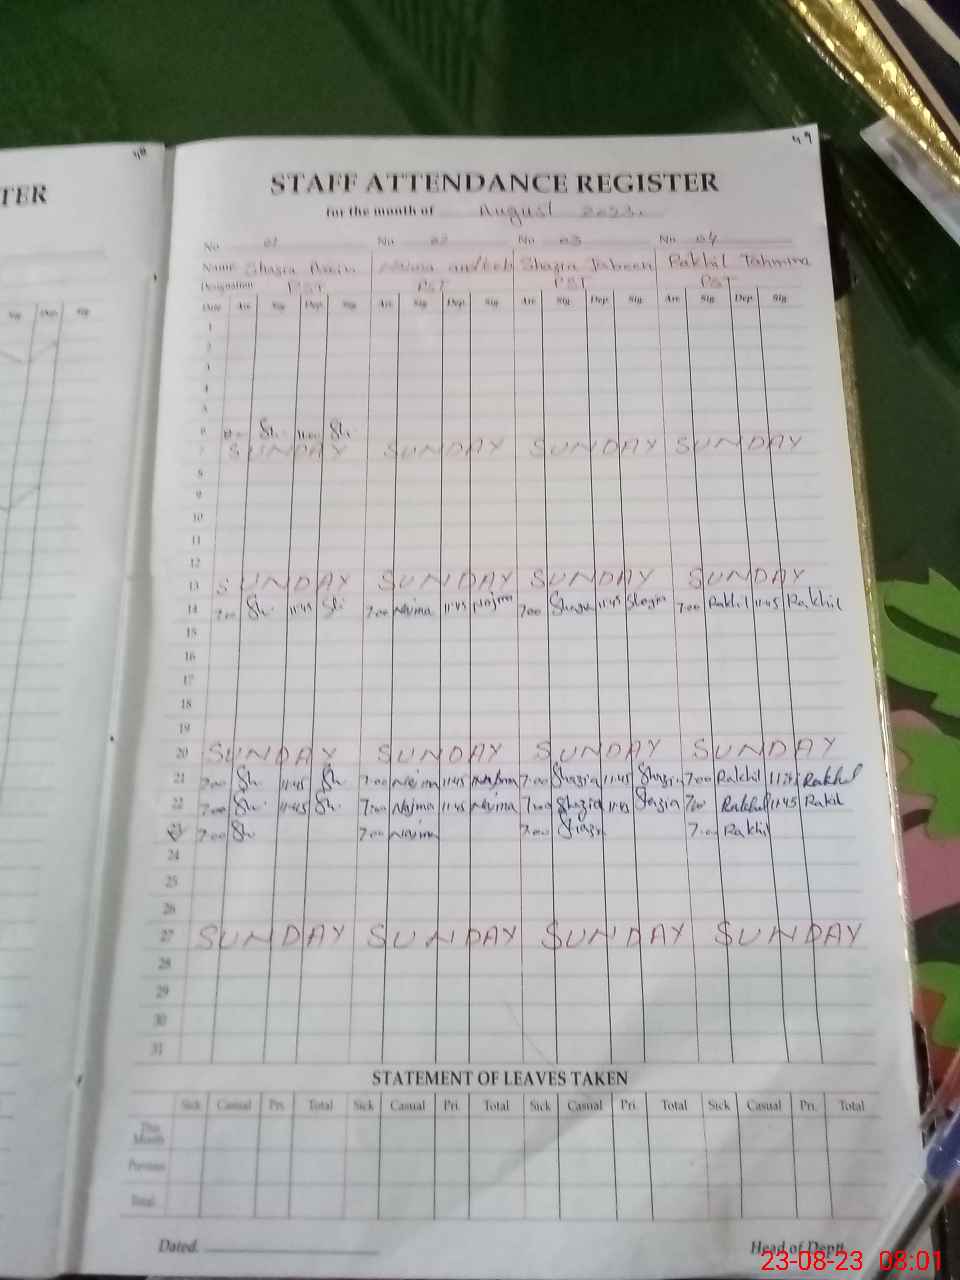 48
49
TER
STAFF ATTENDANCE REGISTER
for the month of August 2023.
No 01 No 02 No 03 No 04
Name Shazia Najma Shazia Jabeen Rakhil Tahmina
Designation PST PST PST PST
Sig Dep. Sig
Date Arr. Sig Dep. Sig Arr. Sig Dep. Sig Arr. Sig Dep. Sig Arr. Sig Dep. Sig
1
2
3
4
5
6 Sh. 11:00 Sh.
7 SUNDAY SUNDAY SUNDAY SUNDAY
8
9
10
11
12
13 SUNDAY SUNDAY SUNDAY SUNDAY
14 7:00 Sh. 11:45 Sh 7:00 Najma 11:45 Najma 7:00 Shazia 11:45 Shazia 7:00 Rakhil 11:45 Rakhil
15
16
17
18
19
20 SUNDAY SUNDAY SUNDAY SUNDAY
21 7:00 Sh. 11:45 Sh. 7:00 Najma 11:45 Najma 7:00 Shazia 11:45 Shazia 7:00 Rakhil 11:45 Rakhil
22 7:00 Sh. 11:45 Sh. 7:00 Najma 11:45 Najma 7:00 Shazia 11:45 Shazia 7:00 Rakhil 11:45 Rakhil
23 7:00 Sh. 7:00 Najma 7:00 Shazia 7:00 Rakhil
24
25
26
27 SUNDAY SUNDAY SUNDAY SUNDAY
28
29
30
31
STATEMENT OF LEAVES TAKEN
Sick Casual Pri. Total Sick Casual Pri. Total Sick Casual Pri. Total Sick Casual Pri. Total
This Month
Previous
Total
Dated. Head of Deptt.
23-08-23 08:01